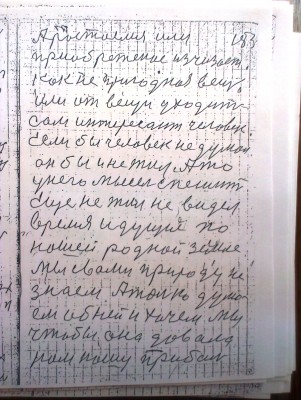 183
простоелия или
приобретение изчизает
как не пригодная вещ.
или от вещи уходит
сам интересант человек
Если бы человек не думал
он бы и не жил А то
у него мысел спешит
еще не жил не видел
время идущие по
нашей родной земле
мы свами природу не
знаем А только дума
ем об ней и хочем мы
чтобы она довала
нам нашу прибал